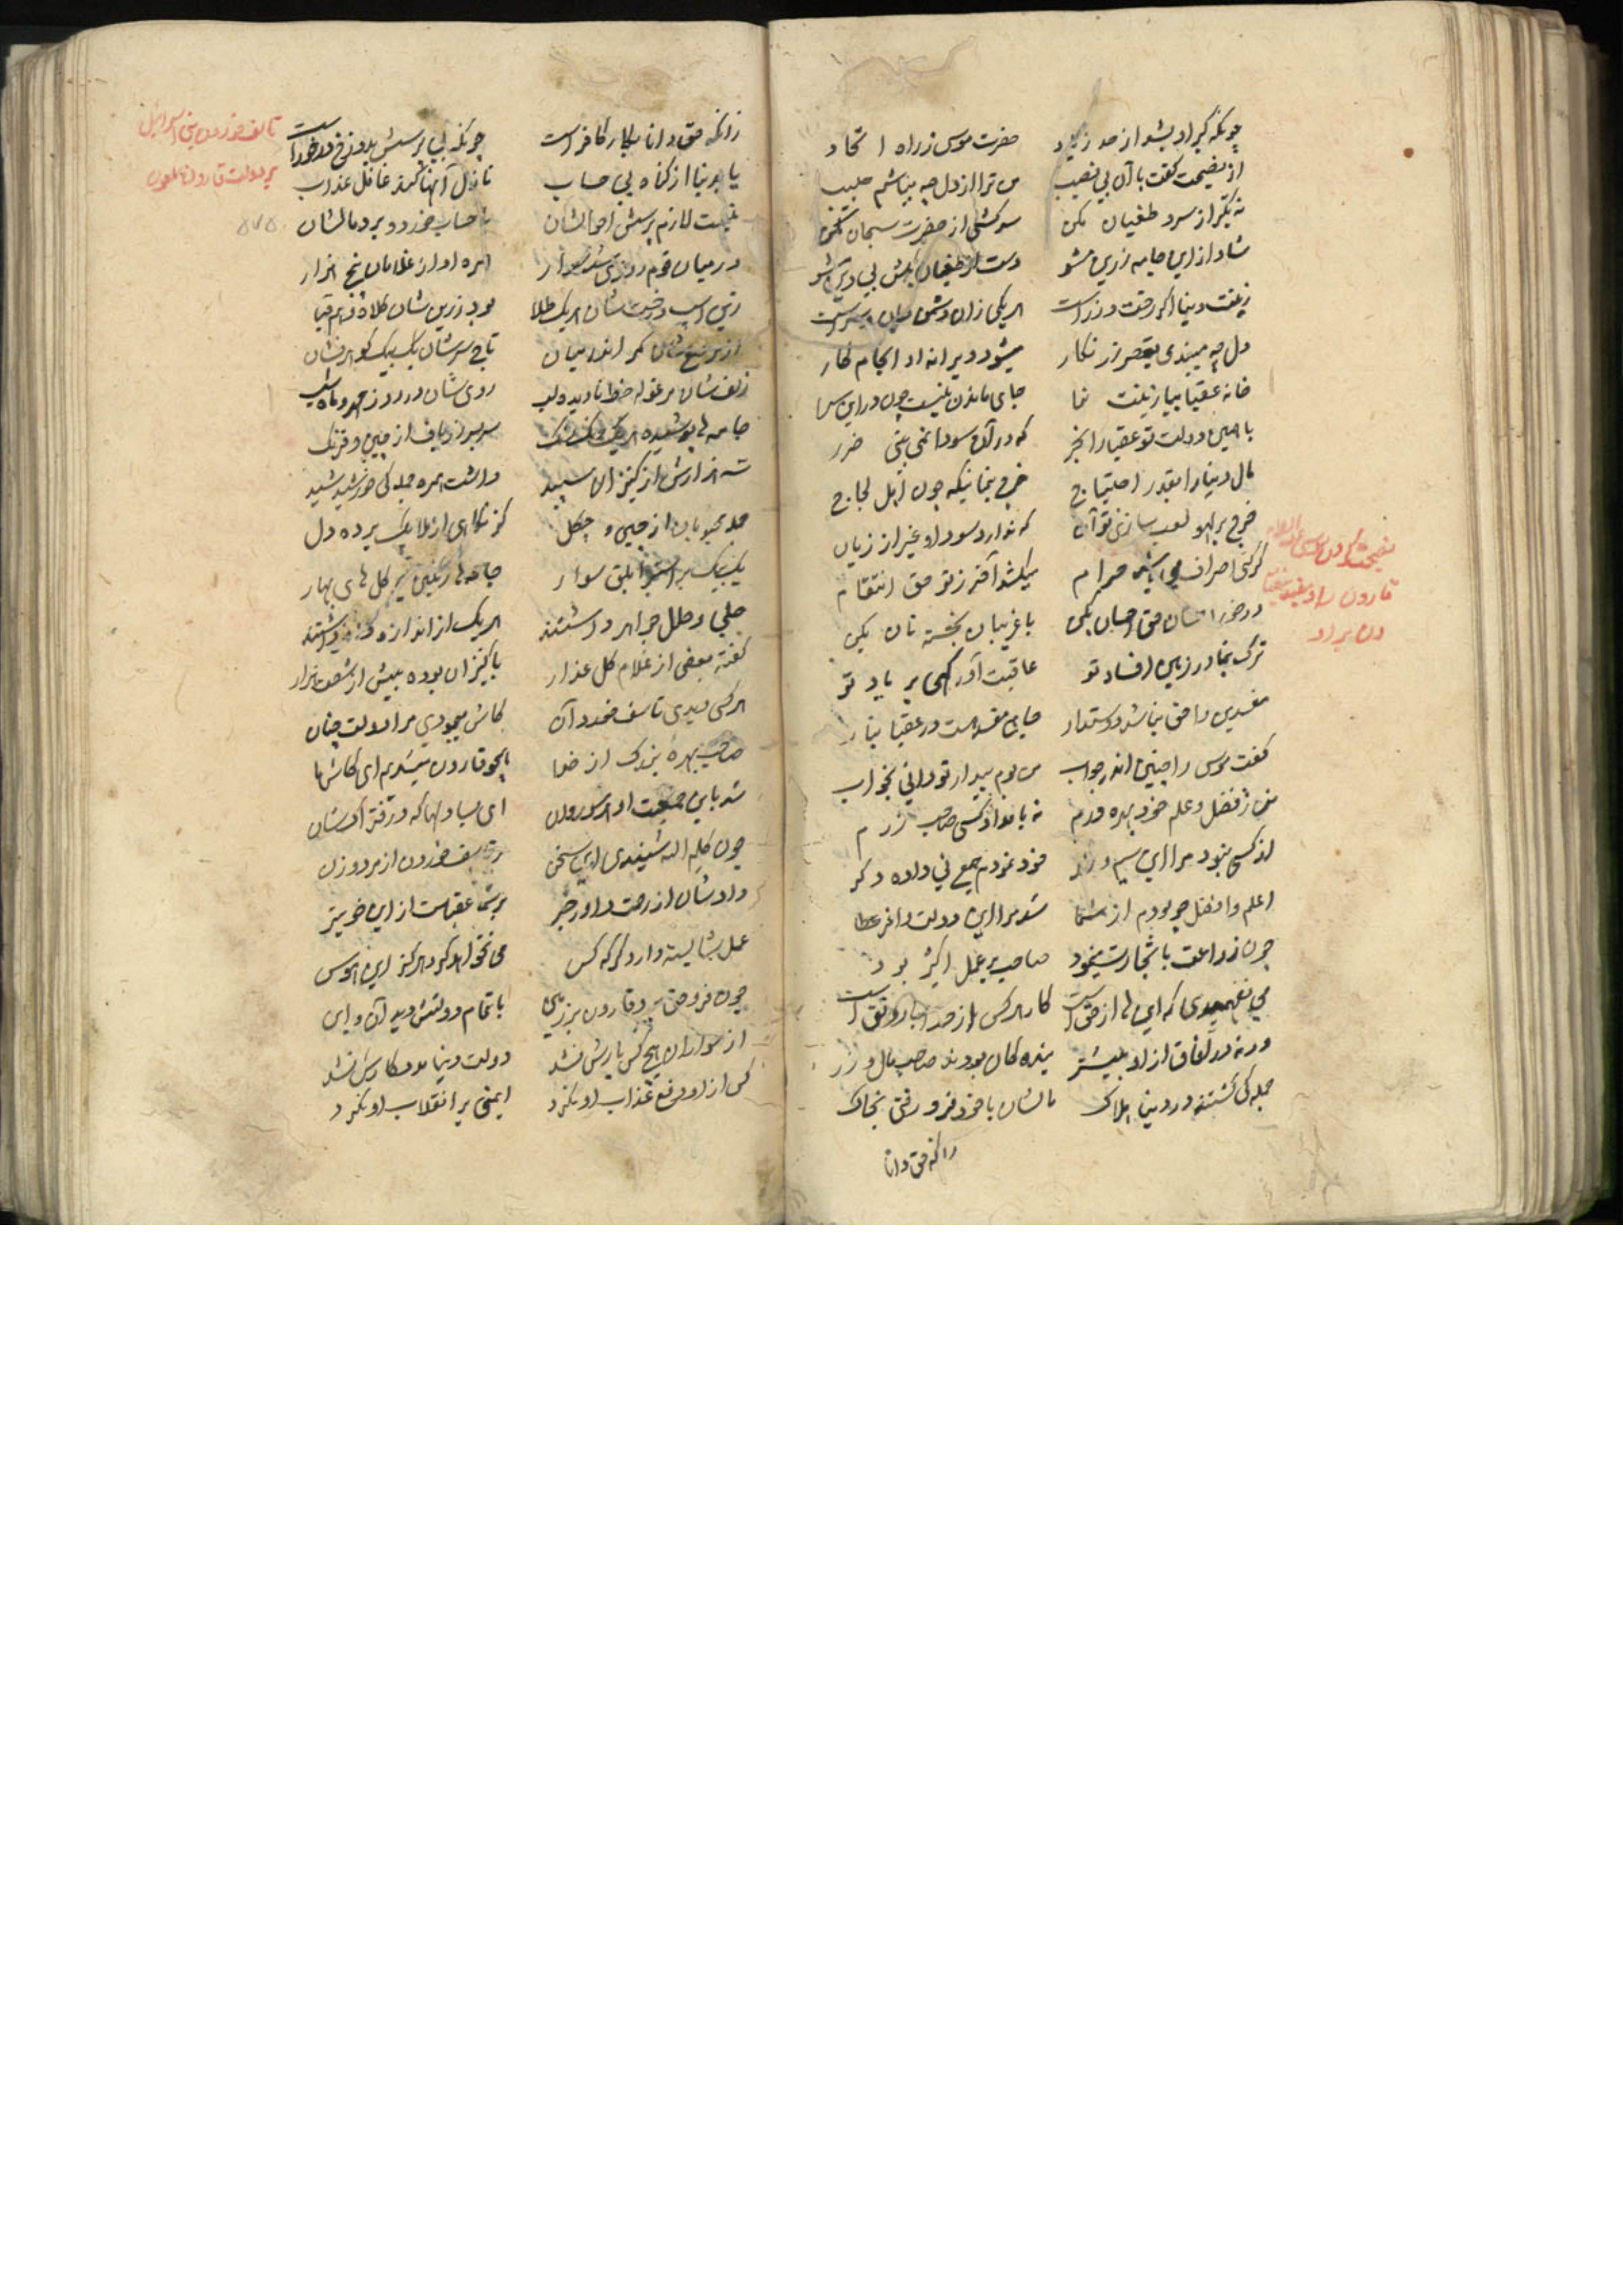 چونکه کبر او بشد از حد زیاد حضرت موسی ز راه اتحاد
از نصیحت گفت با آن بی نصیب من ترا از دل چه بباشم حبیب
نه تکبر از سر و طغیان مکن سرکشی از حضرت سبحان مکن
شاد از این جامه زرین مشو دست از طغیان بکش بی دین مشو
زینت دنیا اگر رخت و زر است هر یکی زان دشمن جان و سر است
دل چه میبندی بقصر زرنگار میشود ویرانه او انجام کار
خانه عقبا بیا زینت نما جای ماندن نیست چون در این سرا
با چنین دولت تو عقبا را بخر که در آن سودا نمی بینی ضرر
مال دنیا را بقدر احتیاج خرج بنما نیکه چون اهل لجاج
خرج بر لهو لعب سازی تو آن که ندارد سود او غیر از زیان
گر کنی اصراف می باشد حرام میکشد آخر ز تو حق انتقام
در خور احسان حق احسان بکن با غریبان بخشش نان بکن
ترک بنما در زمین افساد تو عاقبت آور کهی بر یاد تو
مفسدین را حق نباشد دوستدار جای مفسد هست در عقبا بنار
گفت موسی را چنین اندر جواب من بوم بیدار تو دانی بخواب
من ز فضل و علم خود بهره ورم نه بامداد کسی صاحب زرم
از کسی نبود مرا این سیم و زر خود نمودم جمع نی داده دگر
اعلم و افضل چو بودم از شما شد مرا این دولت وافر عطا
چون زراعت با تجارت مینمود صاحب بر عمل اکثر بود
می نفهمیدی که این ها از حق است کار هر کس از خدا با رونق است
ورنه در آفاق از او بیشتر بنده کان بودند صاحب مال و زر
جمله گی گشتند در دنیا هلاک مالشان با خود فرو رفتی بخاک
زانکه حق دانا
نصیحت کردن موسی علیه السلام
قارون را و نصیحت
دن بر او
زانکه حق دانا بکار کافر است چونکه بی پرسش بدوزخ در خور است
یا بدنیا از گناه بی حساب نازل آنها کند غافل عذاب
نیست لازم پرسش احوالشان با حساب خورد و برد مالشان
در میان قوم روزی شد سوار همره او از غلامان پنج هزار
زین اسب و رخت شان هر یک طلا بود زرین شان کلاه و هم قبا
از مرصع شان کمر اندر میان تاج سرشان یک بیک گوهر فشان
زلف شان مرغوله خط نادیده لب روی شان در روز مهر و ماه شب
جامه ها پوشیده هر یک رنگ رنگ سربسر زرباف از چین و فرنگ
سه هزارش از کنیزان سپید داشت همره جمله گی خورشید دید
جمله محبوبان از چین و چگل کز نگاهی از ملایک برده دل
یک بیک بر استر ابلق سوار جامه ها رنگین چو گل های بهار
حلی و حلل جواهر داشتند هر یک از اندازه
گفته بعضی از غلام گل عذار با کنیزان بوده بیش از شصت هزار
هر کسی دیدی تاسف خورد آن کاش میبودی مرا دولت چنان
صاحب بهره بزرگ از خدا همچو قارون میشدیم ای کاش ما
شد باین جمعیت او هر سو روان ای بسا دلها که در فتراک شان
چون کلیم الله شنیدی این سخن
داد شان از رحمت داور خبر بر شما عقباست از این خوبتر
عمل شایسته دارد گر که کس می نخواهد کرد هرگز این هوس
چون فرو حق برد قارون بر زمین با تمام دولتش دید آن و این
از سواران هیچ کس یارش نشد دولت دنیا مددکارش نشد
کس از او دفع عذاب او نکرد ایمنی بر انقلاب او نکرد
تاسف خوردن بنی اسرائیل
بر دولت قارون ملعون